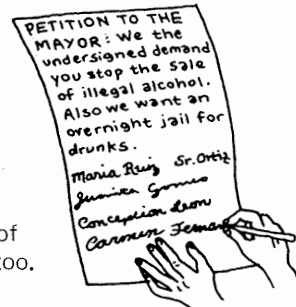 PETITION TO THE
MAYOR: We the
undersigned demand
you stop the sale
of illegal alcohol.
Also we want an
overnight jail for
drunks.
Maria Ruiz Sr. Ortiz
Juanita Gomes
Conception Leon
Carmen Fernan
of
too.